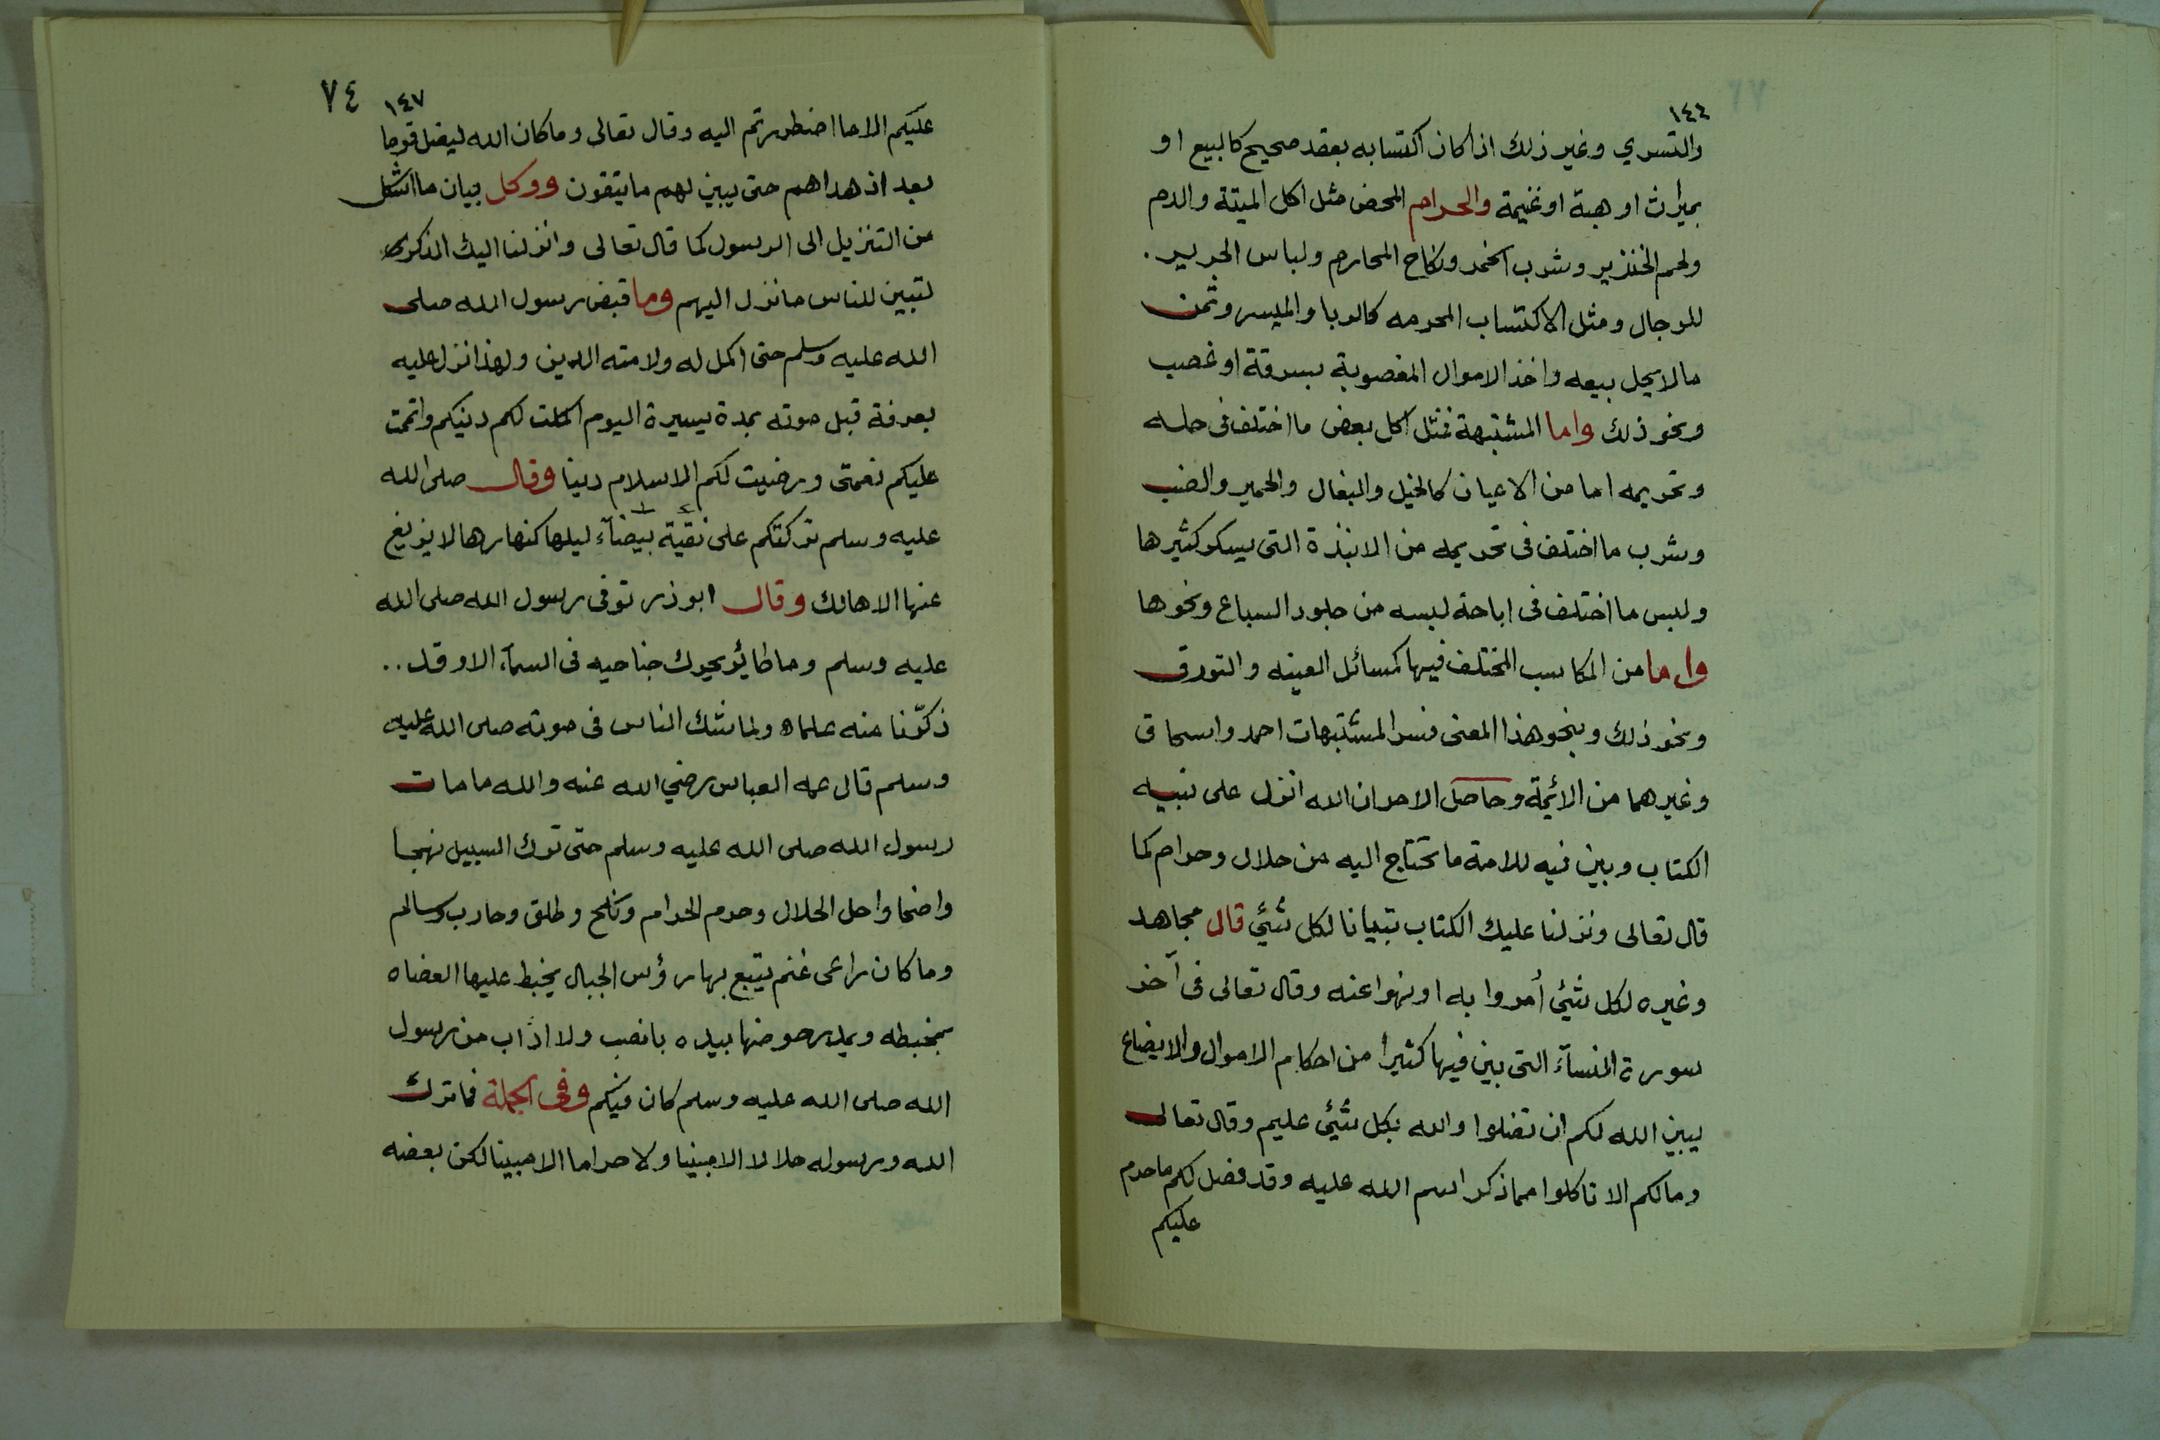 ١٤٤
والتسري وغير ذلك اذا كان اكتسابه بعقد صحيح كالبيع او
بميراث او هبة او غنيمة والحرام المحض مثل اكل الميتة والدم
ولحم الخنزير وشرب الخمر ونكاح المحارم ولباس الحرير .
للرجال ومثل الاكتساب المحرمه كالربا والميسر وثمن
مالا يحل بيعه واخذ الاموال المغصوبة بسرقة او غصب
ونحو ذلك واما المشتبهة فمثل اكل بعض ما اختلف في حله
وتحريمه اما من الاعيان كالخيل والبغال والحمير والضب
وشرب ما اختلف في تحريمه من الانبذة التي يسكر كثيرها
ولبس ما اختلف في اباحة لبسه من جلود السباع ونحوها
واما من المكاسب المختلف فيها كمسائل العينه والتورق
ونحو ذلك وبنحو هذا المعنى فسر المشتبهات احمد واسحاق
وغيرهما من الائمة وحاصل الامر ان الله انزل على نبيه
الكتاب وبين فيه للامة ما تحتاج اليه من حلال وحرام كما
قال تعالى ونزلنا عليك الكتاب تبيانا لكل شئي قال مجاهد
وغيره لكل شئي أمروا به او نهوا عنه وقال تعالى في آخر
سورة النسآء التي بين فيها كثيرا من احكام الاموال والابضاع
يبين الله لكم ان تضلوا والله بكل شئي عليم وقال تعالى
ومالكم الا تاكلوا مما ذكر اسم الله عليه وقد فصل لكم ما حرم
عليكم
٧٤
١٤٧
عليكم الا ما اضطررتم اليه وقال تعالى وما كان الله ليضل قوما
بعد اذ هداهم حتى يبين لهم ما يتقون ووكل بيان ما اشكل
من التنزيل الى الرسول كما قال تعالى وانزلنا اليك الذكر
لتبين للناس ما نزل اليهم وما قبض رسول الله صلى
الله عليه وسلم حتى اكمل له ولامته الدين ولهذا انزل عليه
بعرفة قبل موته بمدة يسيرة اليوم اكملت لكم دينكم واتممت
عليكم نعمتي ورضيت لكم الاسلام دينا وقال صلى الله
عليه وسلم تركتكم على نقية بيضآء ليلها كنهارها لا يزيغ
عنها الا هالك وقال ابو ذر توفى رسول الله صلى الله
عليه وسلم وما طائر يحرك جناحيه في السمآء الا وقد . .
ذكرنا منه علما ولما شك الناس في موته صلى الله عليه
وسلم قال عمه العباس رضي الله عنه والله ما مات
رسول الله صلى الله عليه وسلم حتى ترك السبيل نهجا
واضحا واحل الحلال وحرم الحرام ونكح وطلق وحارب وسالم
وما كان راعى غنم يتبع بها رؤس الجبال يخبط عليها العضاه
بمخبطه ويمدر حوضها بيده بانصب ولا اذاب من رسول
الله صلى الله عليه وسلم كان فيكم وفي الجملة فما ترك
الله ورسوله حلالا الا مبينا ولا حراما الا مبينا لكن بعضه